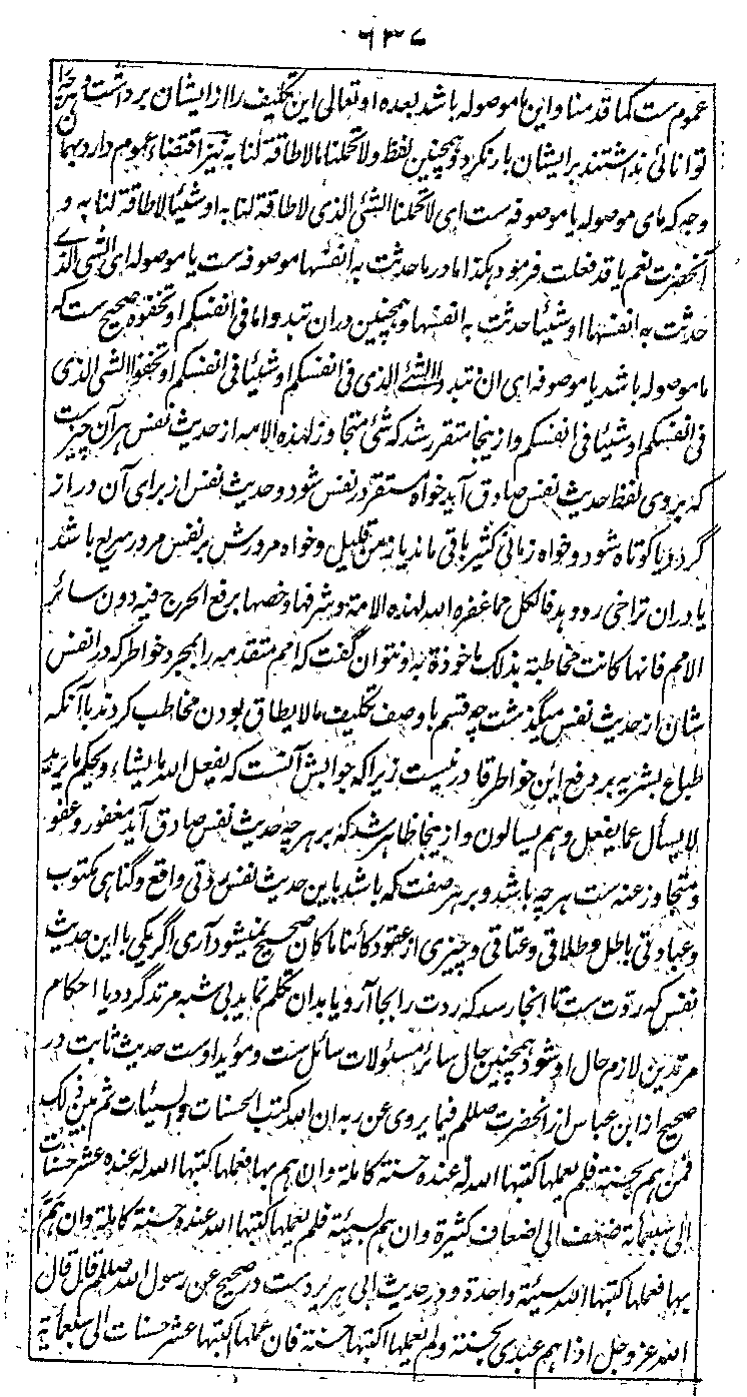 ۶۳۷
عموم ست کما قدمنا و این ما موصوله باشد بعده او تعالی این تکلیف را از ایشان برداشت و چیزیکه
توانائی نداشتند بر ایشان بار نکرد و همچنین لفظ ولا تحملنا مالا طاقة لنا به نیز اقتضاء عموم دارد بهمان
وجه که مای موصوله یا موصوفه ست ای لا تحملنا الشئ الذی لا طاقة لنا به او شیئا لا طاقة لنا به و
آنحضرت نعم یا قد فعلت فرمود هکذا ما در ما حدثت به انفسها موصوفه ست یا موصوله ای الشئ الذی
حدثت به انفسها او شیئا حدثت به انفسها و همچنین در ان تبدوا ما فی انفسکم او تخفوه صحیح ست که
ما موصوله باشد یا موصوفه ای ان تبدوا الشئ الذی فی انفسکم او شیئا فی انفسکم او تخفوا الشی الذی
فی انفسکم او شیئا فی انفسکم و از ینجا متقرر شد که شئ متجاوز لهذه الامه از حدیث نفس هر آن چیزست
که بر وی لفظ حدیث نفس صادق آید خواه مستقر در نفس شود و حدیث نفس از برای آن دراز
گردد یا کوتاه شود و خواه زمانی کثیر باقی ماند یا زمن قلیل و خواه مرورش بر نفس مرور سریع باشد
یا در ان تراخی رو دهد فالکل مما غفره الله لهذه الامة و شرفها و خصها برفع الحرج فیه دون سائر
الامم فانها کانت مخاطبة بذلک ماخوذة به و نتوان گفت که امم متقدمه را بمجرد خواطر که در انفس
شان از حدیث نفس میگذشت چه قسم با وصف تکلیف مالا یطاق بودن مخاطب کردند با آنکه
طباع بشریه بر دفع این خواطر قادر نیست زیرا که جوابش آنست که یفعل الله ما یشاء و یحکم ما یرید
لا یسأل عما یفعل و هم یسالون و از ینجا ظاهر شد که بر هر چه حدیث نفس صادق آید مغفور و عفو
و متجاوز عنه ست هر چه باشد و بر هر صفت که باشد باین حدیث نفس ردتی واقع و گناهی مکتوب
و عبادتی باطل و طلاقی و عتاقی و چیزی از عقود کائنا ما کان صحیح نمیشود آری اگر یکی با این حدیث
نفس که ردت ست تا انجا رسد که ردت را بجا آرد یا بدان تکلم نماید بی شبه مرتد گردد یا احکام
مرتدین لازم حال او شود همچنین حال سائر مسئولات سائل ست و مؤید اوست حدیث ثابت در
صحیح از ابن عباس از آنحضرت صللم فیما یروی عن ربه ان الله کتب الحسنات والسیئات ثم بین ذلک
فمن هم بحسنة فلم یعملها کتبها الله له عنده حسنة کاملة وان هم بها فعملها کتبها الله له عنده عشر حسنات
الی سبعمائة ضعف الی اضعاف کثیرة وان هم بسیئة فلم یعملها کتبها الله عنده حسنة کاملة وان هم
بها فعملها کتبها الله سیئة واحدة و در حدیث ابی هریره ست در صحیح عن رسول الله صللم قال قال
الله عز و جل اذا هم عبدی بحسنة و لم یعملها اکتبها حسنة فان عملها اکتبها عشر حسنات الی سبعمائة